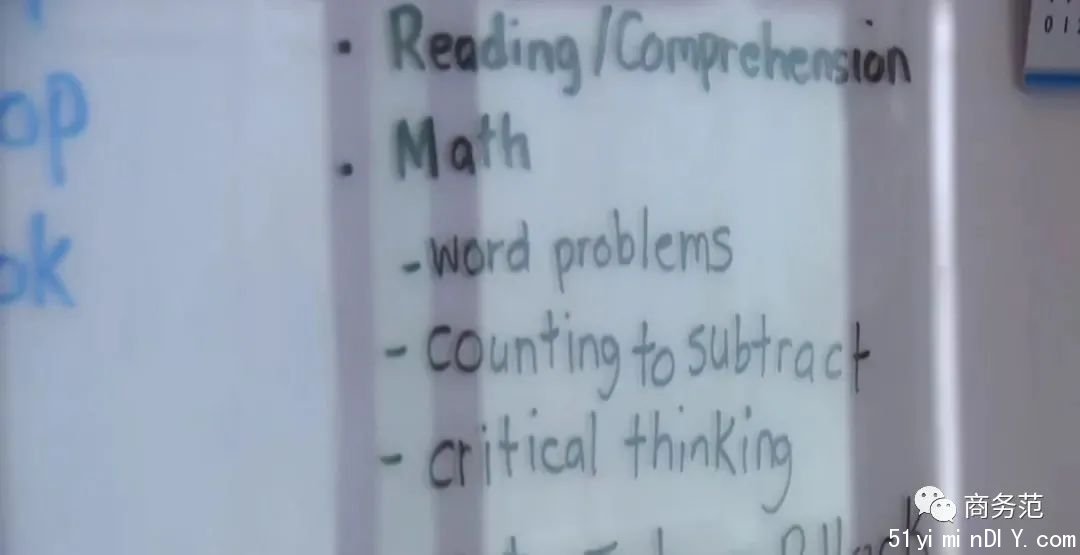 · Reading/Comprehension
· Math
-word problems
- counting to subtract
- critical thinking
op
ok
012
商务范
51yiminDIY.com